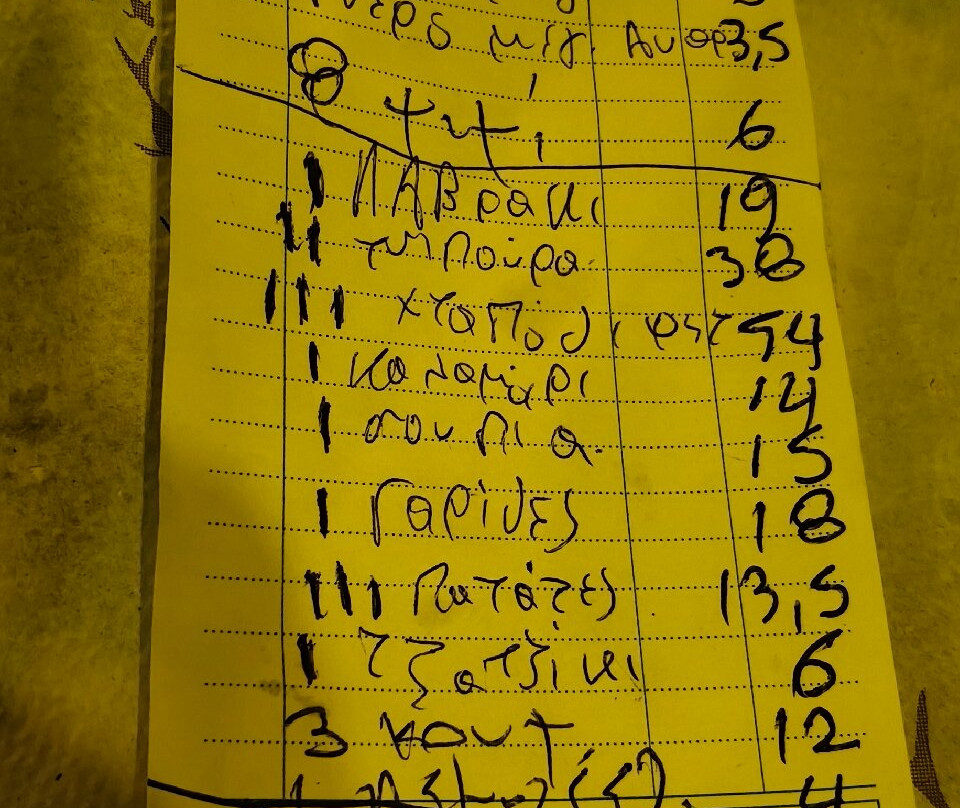 μιγ. 3,5
8 ψψ, 6
1 ΛΑΒΡακι 19
11 τσιΠούρα 38
111 χταΠόδι ψητ 54
1 καλαμάρι 14
1 σουΠια 15
1 Γαρίδες 18
111 Πατάτες 13,5
1 τζατζίκι 6
3 κουτ 12
4